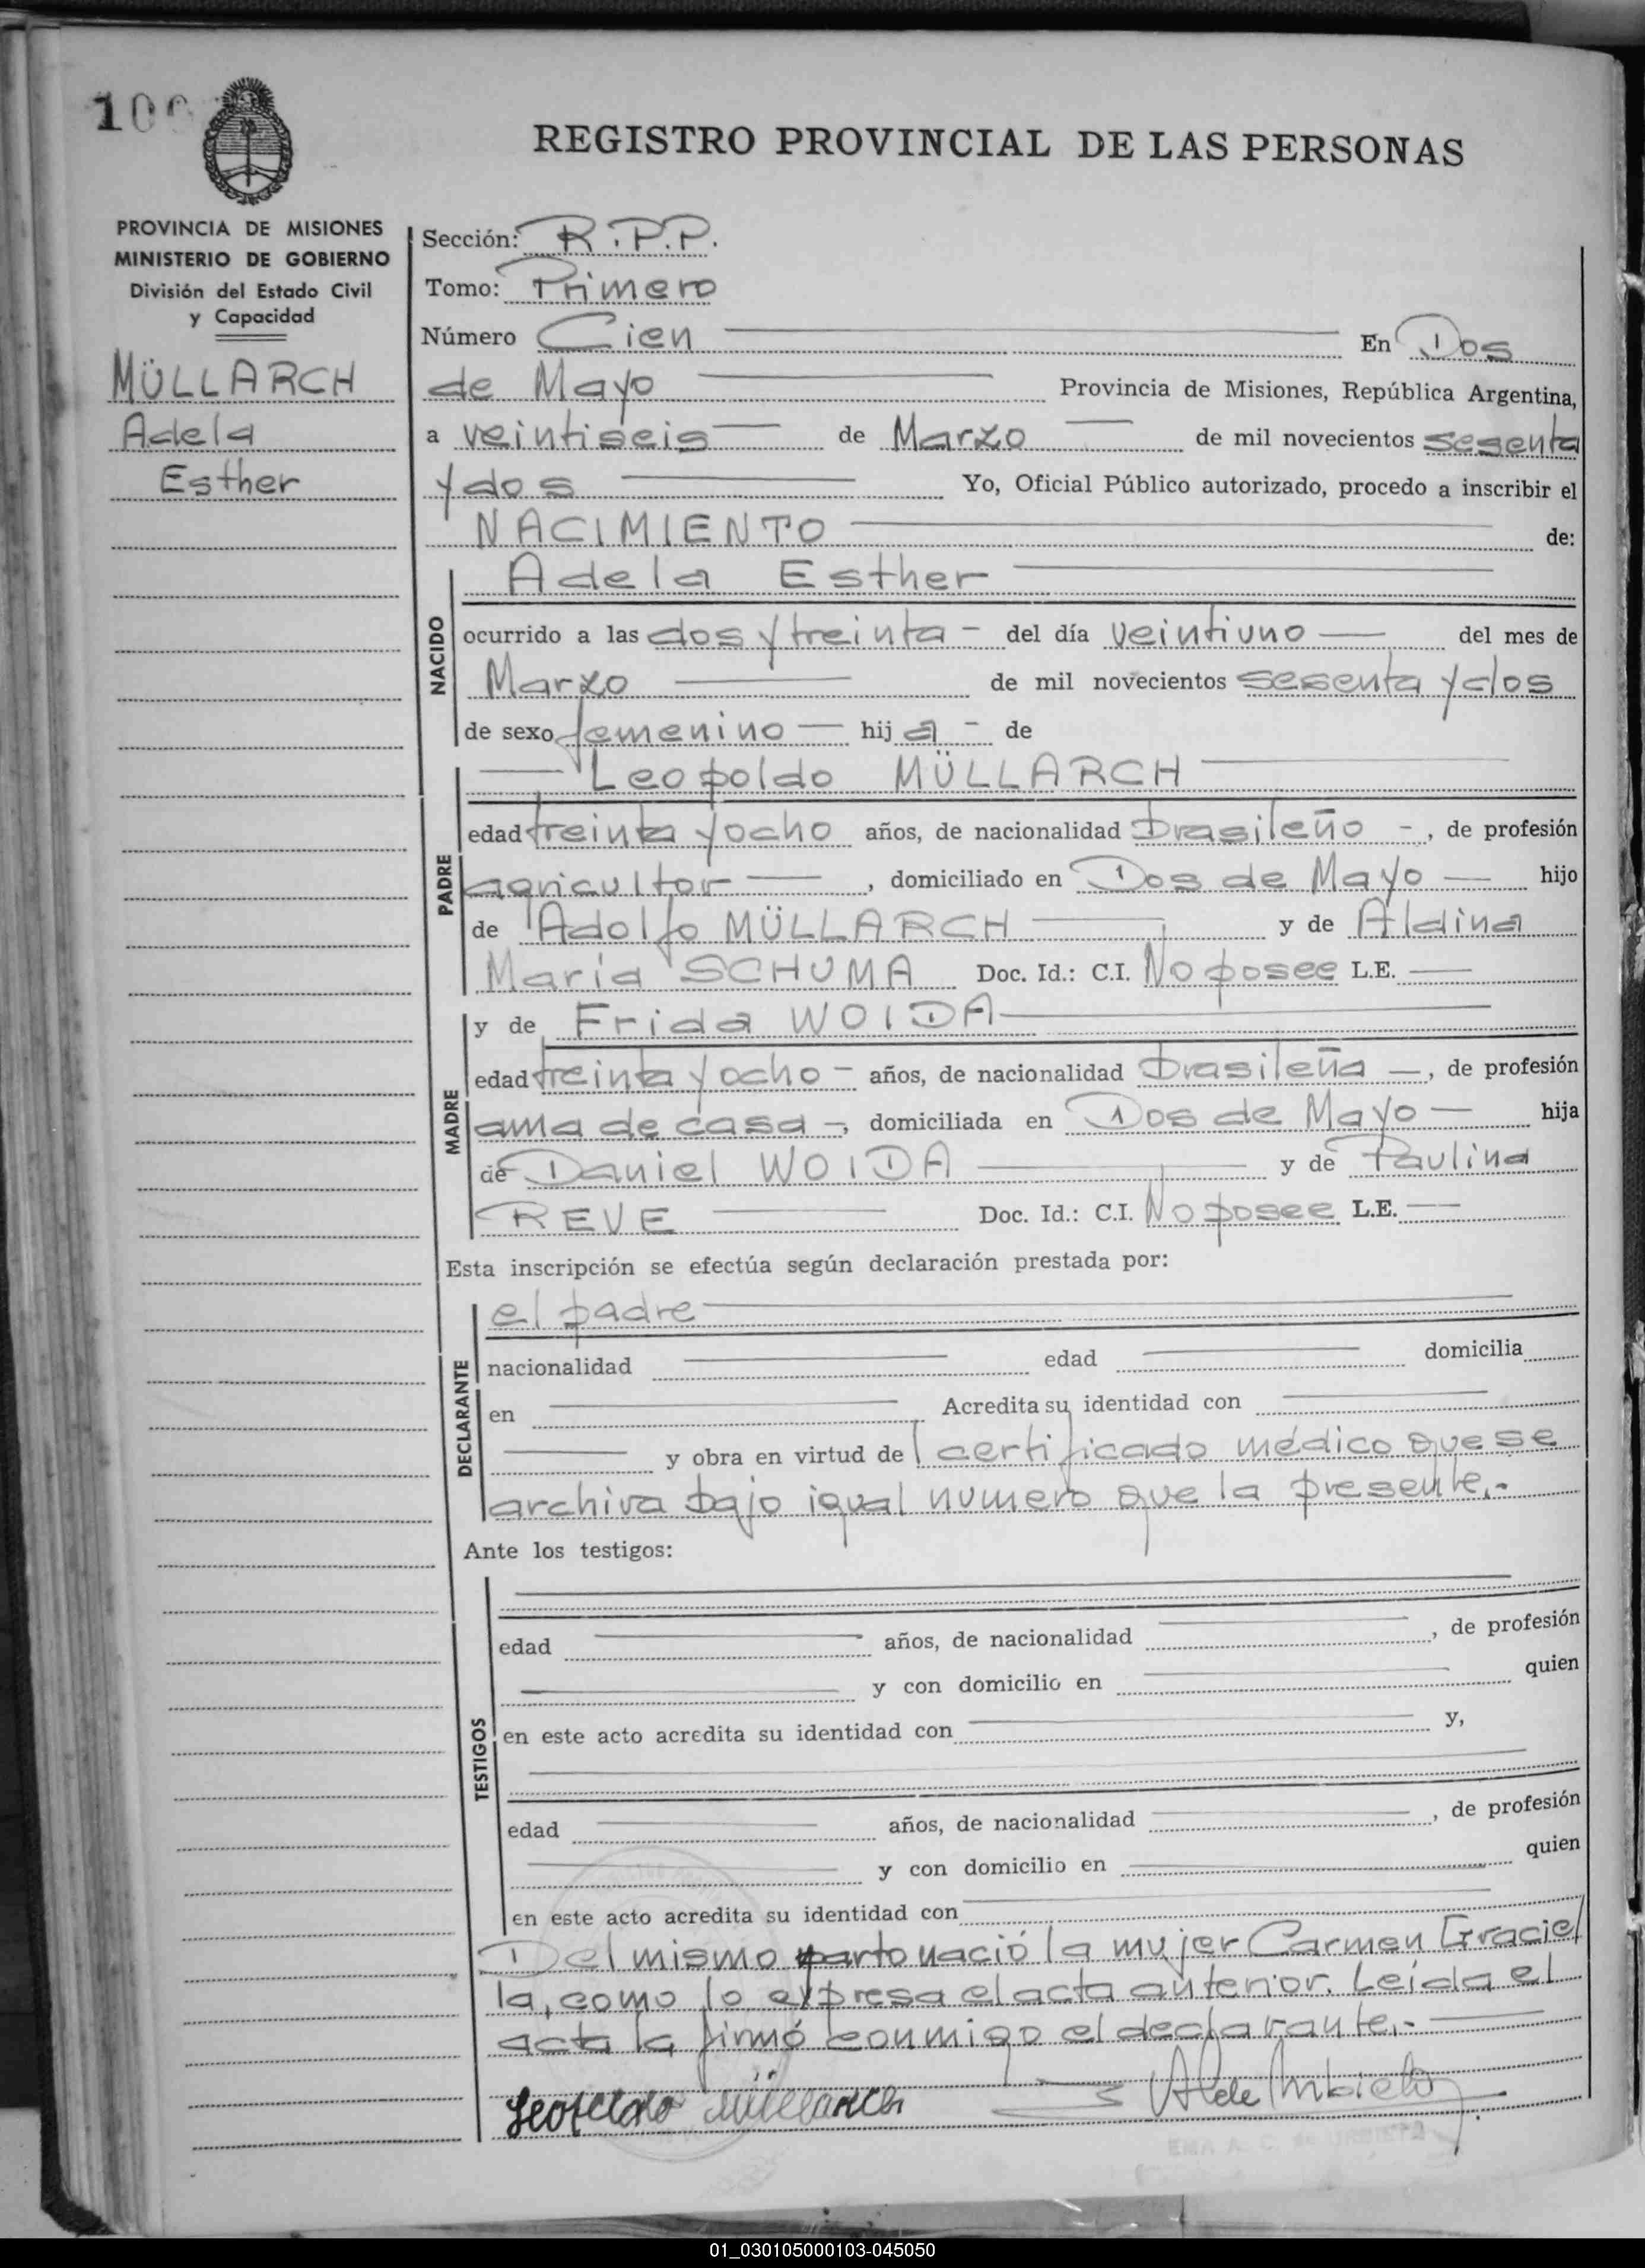 100
REGISTRO PROVINCIAL DE LAS PERSONAS
PROVINCIA DE MISIONES
MINISTERIO DE GOBIERNO
División del Estado Civil
y Capacidad
MÜLLARCH
Adela
Esther
Sección: R.P.P.
Tomo: Primero
Número Cien En Dos
de Mayo Provincia de Misiones, República Argentina,
a veintiseis de Marzo de mil novecientos sesenta
y dos Yo, Oficial Público autorizado, procedo a inscribir el
NACIMIENTO de:
NACIDO
Adela Esther
ocurrido a las dos y treinta - del día veintiuno del mes de
Marzo de mil novecientos sesenta y dos
de sexo femenino hij a - de
PADRE
Leopoldo MÜLLARCH
edad treinta y ocho años, de nacionalidad brasileño -, de profesión
agricultor, domiciliado en Dos de Mayo hijo
de Adolfo MÜLLARCH y de Aldina
Maria SCHUMA Doc. Id.: C.I. No posee L.E.
MADRE
y de Frida WOIDA
edad treinta y ocho - años, de nacionalidad brasileña -, de profesión
ama de casa -, domiciliada en Dos de Mayo hija
de Daniel WOIDA y de Paulina
REVE Doc. Id.: C.I. No posee L.E.
Esta inscripción se efectúa según declaración prestada por:
DECLARANTE
el padre
nacionalidad edad domicilia
en Acredita su identidad con
y obra en virtud de certificado médico que se
archiva bajo igual numero que la presente.-
Ante los testigos:
TESTIGOS
edad años, de nacionalidad , de profesión
y con domicilio en quien
en este acto acredita su identidad con y,
edad años, de nacionalidad , de profesión
y con domicilio en quien
en este acto acredita su identidad con
Del mismo parto nació la mujer Carmen Graciel
la, como lo expresa el acta anterior. Leída el
acta la firmó conmigo el declarante.-
Leopoldo Müllarch
01_030105000103-045050